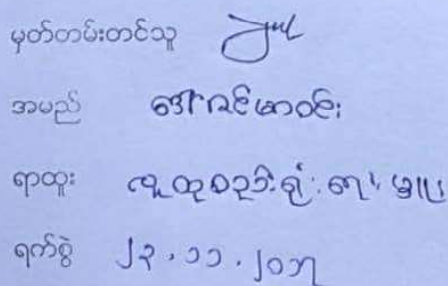 မှတ်တမ်းတင်သူ
အမည် ဒေါ်ခင်မာဝင်း
ရာထူး လူထုစည်းရုံးရေး မှူး
ရက်စွဲ ၂၃.၁၁.၂၀၁၇